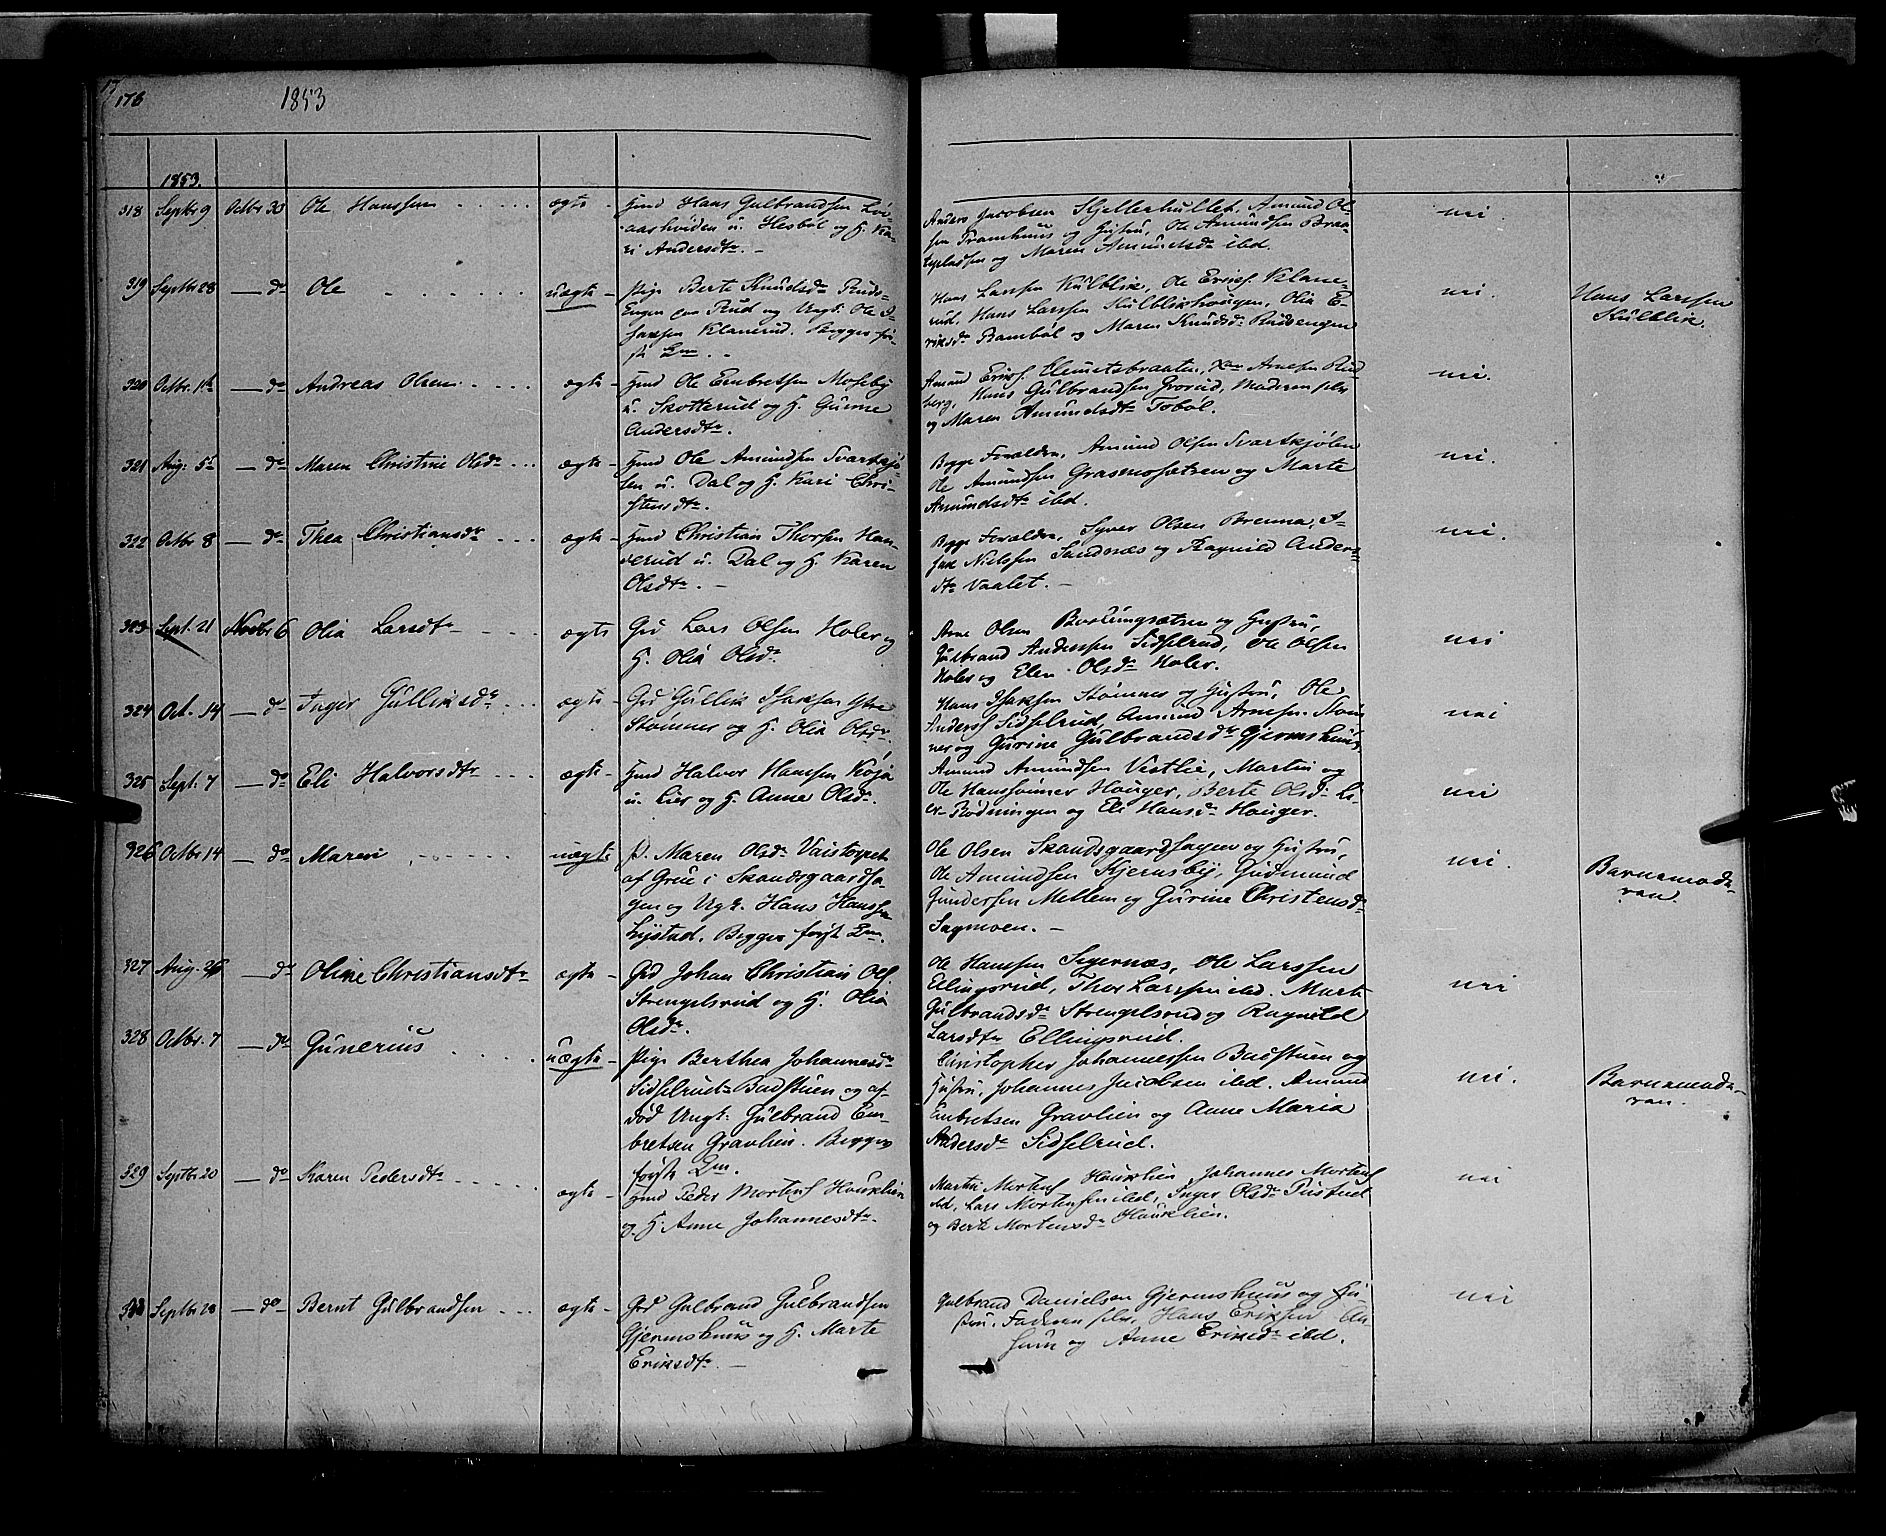 176
1853
1853.
318 Septbr 9 Octbr 30 Ole Hanssen ægte Hmd Hans Gulbrandsen
aashviden u. Hesböl og H. Ka-
ri Andersdtr.
Anders Jacobsen Skjellerhullet, Amund Ol-
sen Tramhuus og Hustru, Ole Amundsen Braa-
tepladsen og Maren Amundsdr ibd.
nei
319 Septbr 28 do Ole uægte Pige Berte Knudsdr Ruds-
Engen paa Rud og Ungk. Ole I-
saksen Klanerud. Begges för-
ste Lm.
Hans Larssen Kulblik, Ole Eriks. Klane-
rud, Hans Larssen Kulblikhougen, Olia E-
riksdr Bamböl og Maren Knudsdr Rudsengen
nei.
Hans Larssen
Kulblik.
320 Octbr 11te do Andreas Olsen ægte Hmd Ole Embretsen Moseby
u. Skotterud og H. Gunne
Andersdtr.
Amund Eriks. Arnesen Rud-
berg, Hans Gulbrandsen Grorud, Moderen selv
og Maren Amundsdtr Toböl.
nei.
321 Aug: 5te do Maren Christine Olsdr ægte Hmd Ole Amundsen Svartkjö-
len u. Dal og H. Kari Chri-
stensdtr.
Begge Foreldre, Amund Olsen Svartkjölen
Ole Amundsen Grasmosætren og Marte
Amundsdtr ibd.
nei.
322 Octbr 8 do Thea Christiansdr ægte Hmd Christian Thorsen Han-
serud u. Dal og H. Karen
Olsdtr.
Begge Foreldre, Syver Olsen Brenna, I-
sak Nielssen Sandnæs og Ragnild Anders-
dtr Vaalet.
nei.
323 Sept. 21 Novbr 6 Olia Larsdtr ægte Grd Lars Olsen Holer og
H. Olia Olsdr.
Arne Olsen og Hustru,
Gulbrand Anderssen Sidselrud, Ole Olsen
Holer og Elen Olsdr Holer.
nei
324 Oct. 14 do Inger Gulliksdr ægte Grd Gullik Isaksen Ystre
Stömner og H. Olia Olsdr.
Hans Isaksen Stömner og Hustru, Ole
Anders. Sidselrud, Amund Arnesen Stöm-
ner og Gurine Gulbrandsdr Gjermshuus
nei
325 Sept. 7 do Eli Halvorsdtr ægte Hmd Halvor Hanssen Köja
u. Lier og H. Anne Olsdr.
Amund Amundsen Vestlie, Martin og
Ole Hanssönner Houger, Berte Olsdr Li-
er-Rödningen og Eli Hansdr Houger.
nei
326 Octbr 14 do Maren uægte P. Maren Olsdr Vaistorpet
af Grue i Skandsgaardsa-
gen og Ungk. Hans Hanssen
Lystad. Begges forste Lm.
Ole Olsen Skandsgaardsagen og Hustru,
Ole Amundsen Kjernsby, Gudmund
Gundersen Mellem og Gurine Christensdr
Sagmoen.
nei.
Barnemode-
ren.
327 Aug. 26 do Oline Christiansdtr ægte Grd Johan Christian Ols.
Strengelsrud og H. Olia
Olsdr.
Ole Hanssen Segernæs, Ole Larssen
Ellingsrud, Thor Larssen ibd. Marte
Gulbrandsdr Strengelsrud og Ragnild
Larsdtr Ellingsrud.
nei
328 Octbr. 7 do Gunerius uægte Pige Berthea Johannesdr
Sidselruds-Badstuen og af-
död Ungk: Gulbrand Em-
bretsen Gravlien. Begges
förste Lm.
Christopher Johannessen Badstuen og
Hustru, Johannes Jacobsen ibd. Amund
Embretsen Gravlien og Anne Maria
Andersdr Sidselrud.
nei.
Barnemode-
ren.
329 Septbr 20 do Karen Pedersdtr ægte Hmd Peder Mortens. Houklien
og H. Anne Johannesdtr.
Martin Mortens. Houklien, Johannes Mortens.
ibd, Lars Mortenssen ibd, Inger Olsdr Pustud
og Berte Mortensdr Houklien.
nei
330 Septbr 28 do Bernt Gulbrandsen ægte Grd Gulbrand Gulbrandsen
Gjermshuus og H. Marte
Eriksdtr.
Gulbrand Danielsen Gjermshuus og Hu-
stru. Faderen selv, Hans Eriksen
og Anne Eriksdr ibd.
nei